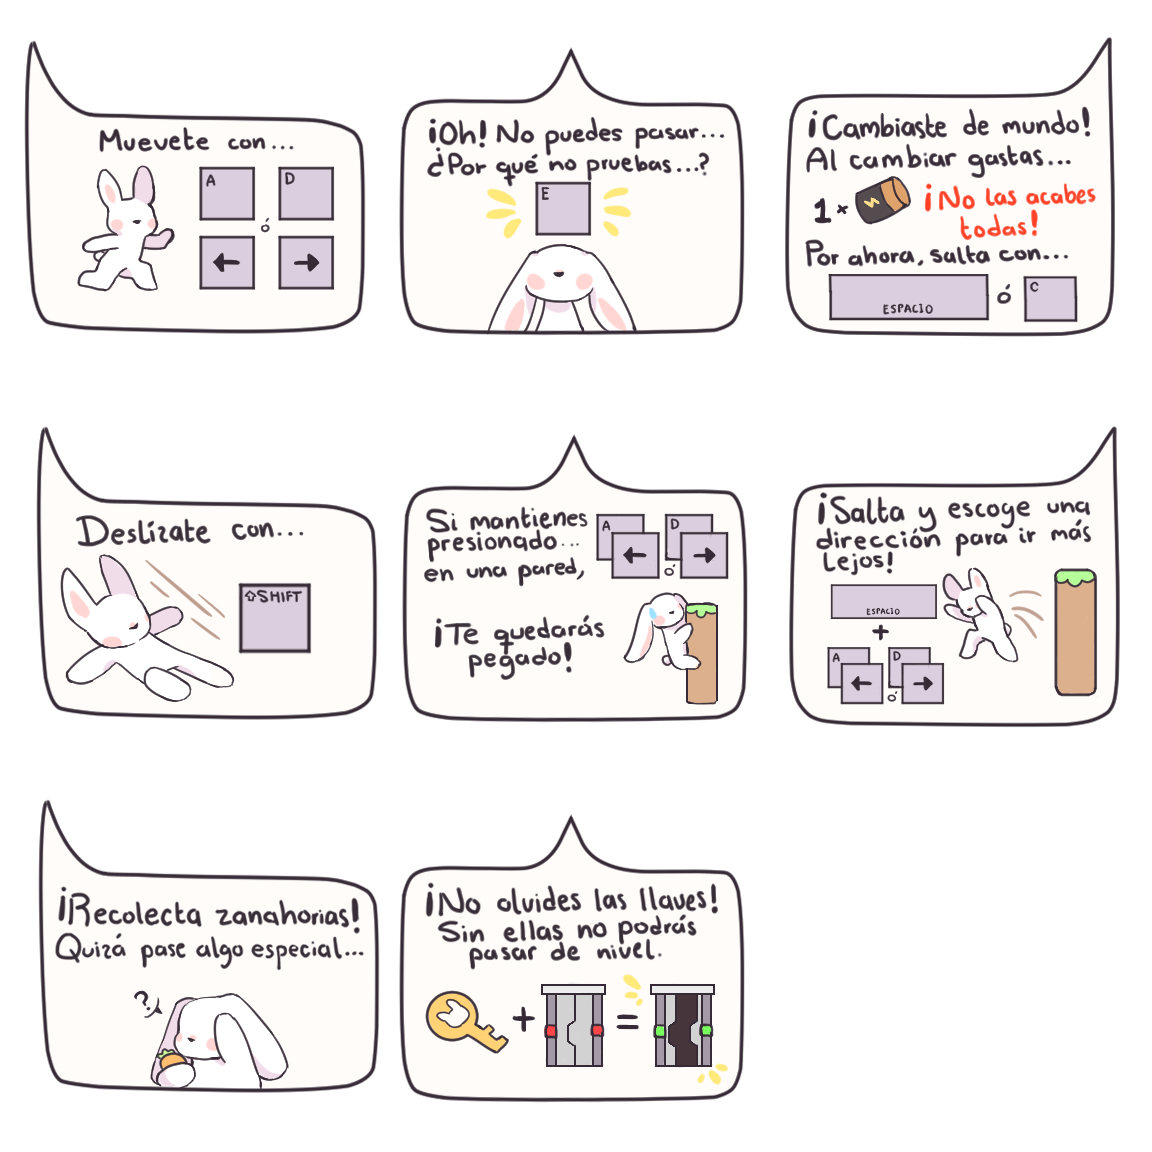 Muevete con...
A
D
ó
← →
¡Oh! No puedes pasar...
¿Por qué no pruebas...?
E
¡Cambiaste de mundo!
Al cambiar gastas...
1 × ¡No las acabes
todas!
Por ahora, salta con...
ESPACIO ó C
Deslízate con...
⇧SHIFT
Si mantienes
presionado...
A D
← ó →
en una pared,
¡Te quedarás
pegado!
¡Salta y escoge una
dirección para ir más
lejos!
ESPACIO
+
A D
← ó →
¡Recolecta zanahorias!
Quizá pase algo especial...
?
¡No olvides las llaves!
Sin ellas no podrás
pasar de nivel.
+ =